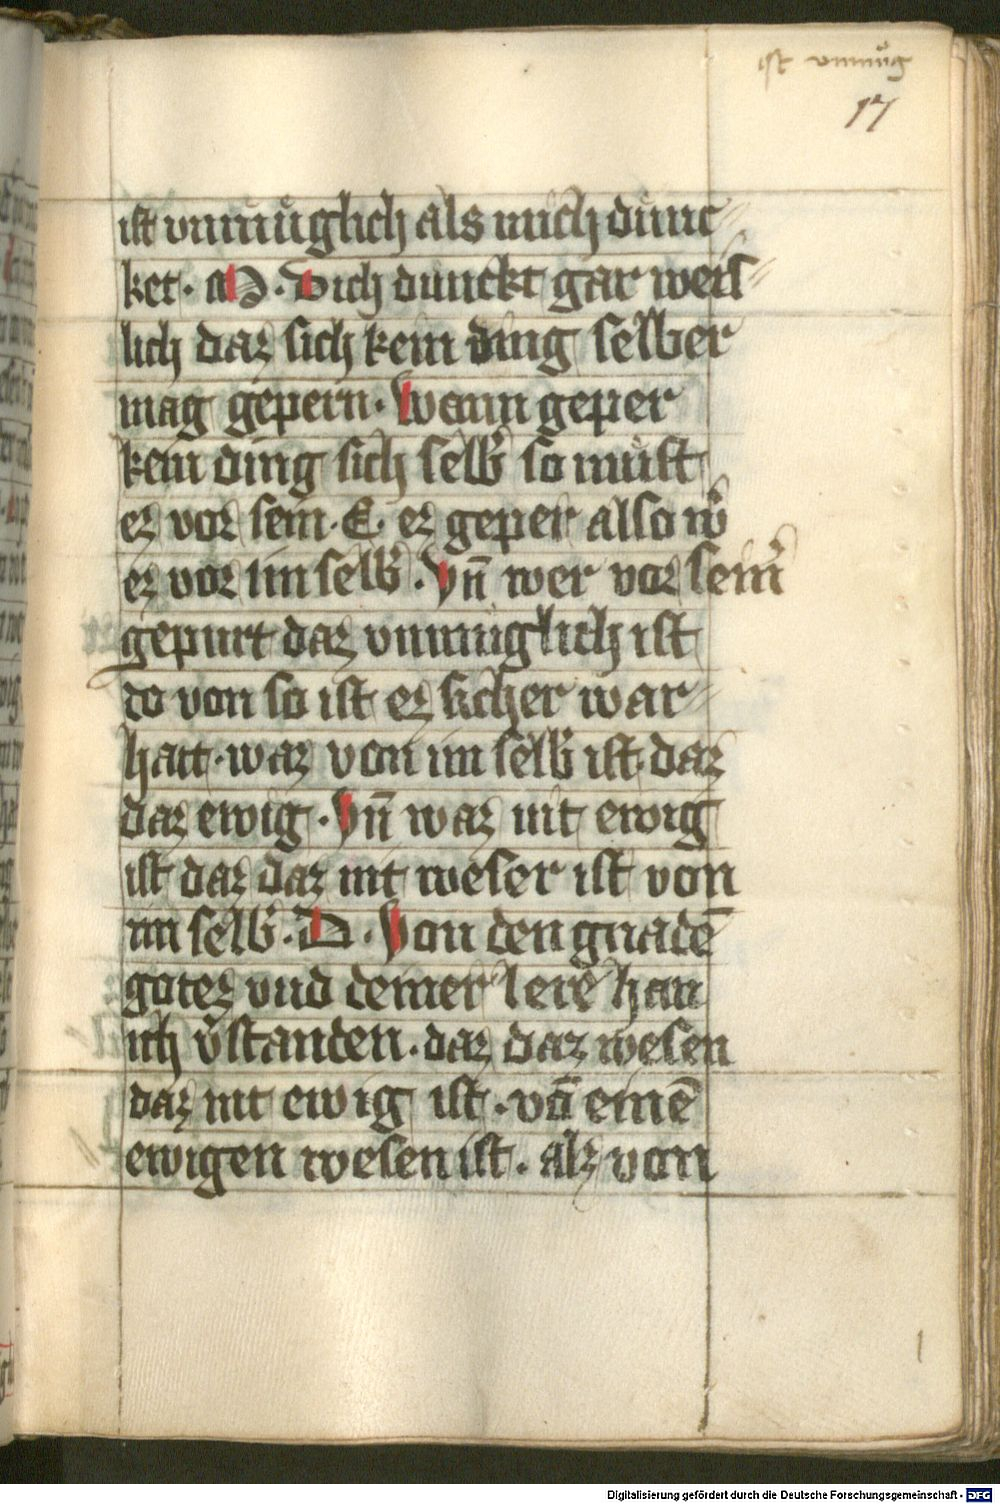 ist vnmüg
17
ist vnmuͤglich als mich dunc⸗
ket. M. Dich dunckt gar weis⸗
lich daz sich kein ding selber
mag gepern. Wann geper
kein ding sich selb̾ so muͤst
ez vor sein. E. ez geper also w̾
ez vor im selb̾. Vn̄ wer vor sein̾
gepurt daz vnmuglich ist
do von so ist ez sicher war⸗
hait. waz von im selb̾ ist. daz
daz ewig. Vn̄ waz nit ewig
ist daz daz nit weser ist von
im selb̾. D. Von den gnadē
gotez vnd deiner lere han
ich v̾standen. daz daz wesen
daz nit ewig ist. vō einē
ewigen wesen ist. alz von
Digitalisierung gefördert durch die Deutsche Forschungsgemeinschaft - DFG